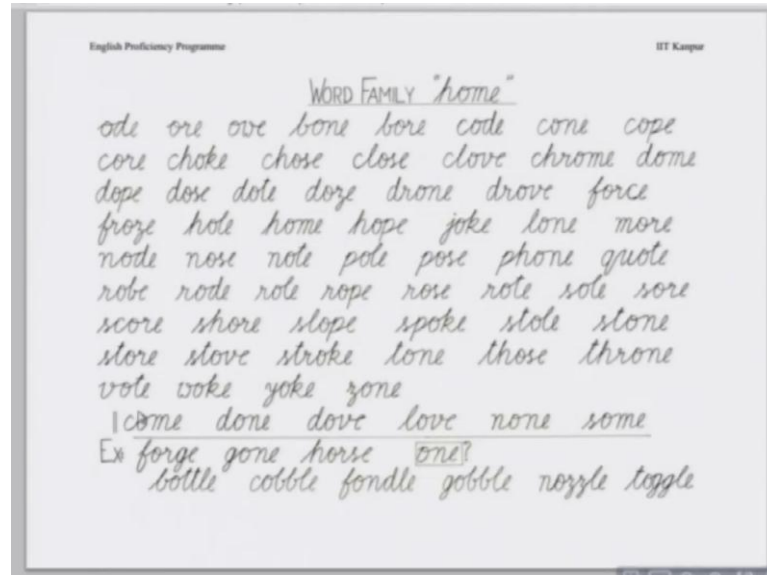 English Proficiency Programme IIT Kanpur
WORD FAMILY "home"
ode ore ove bone bore code cone cope
core choke chose close clove chrome dome
dope dose dote doze drone drove force
froze hole home hope joke lone more
node nose note pole pose phone quote
robe rode role rope rose rote sole sore
score shore slope spoke stole stone
store stove stroke tone those throne
vote woke yoke zone
come done dove love none some
Ex: forge gone horse one?
bottle cobble fondle gobble nozzle toggle